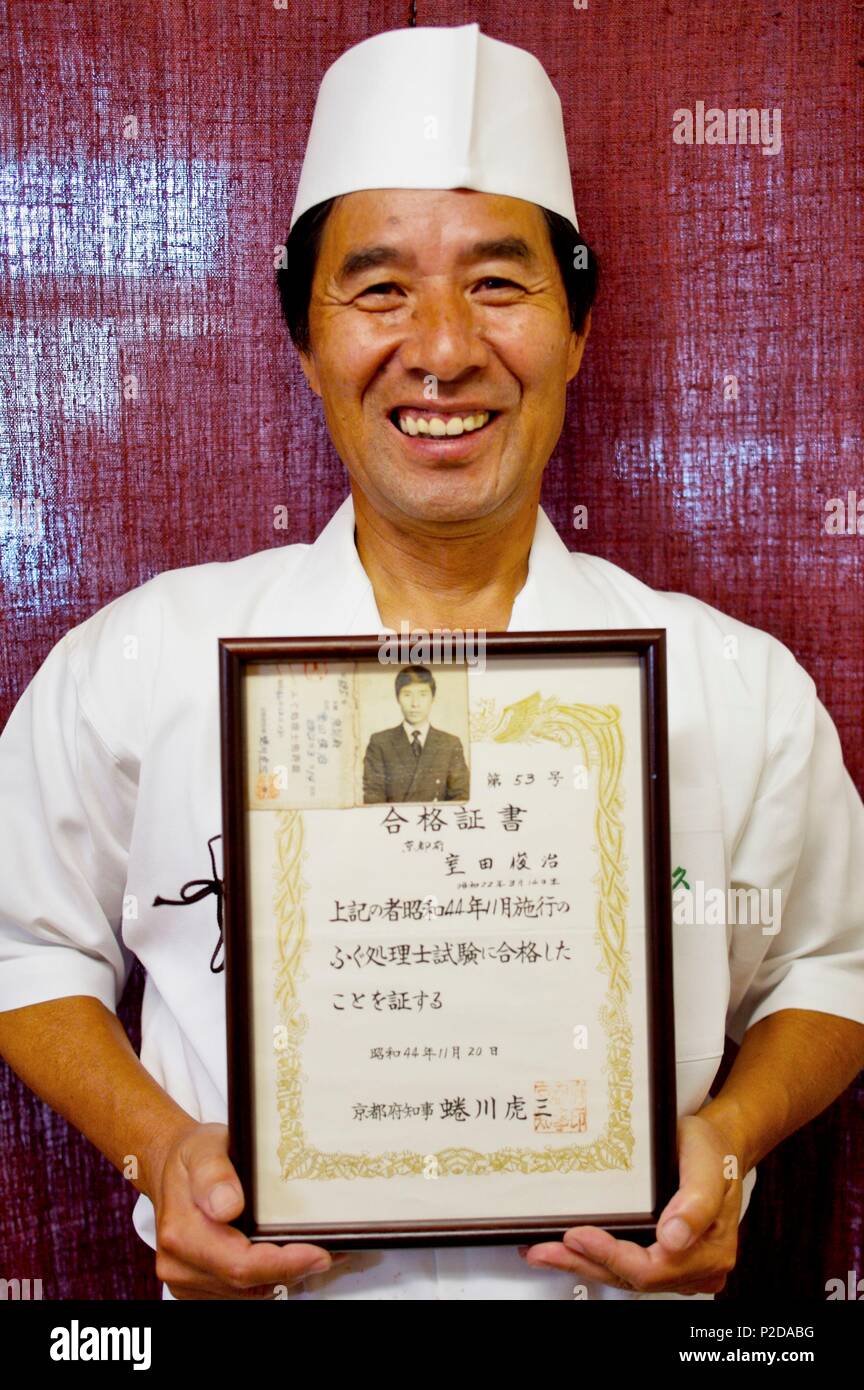 第 53 号
合格証書
京都府
室田俊治
上記の者昭和44年11月施行の
ふぐ処理士試験に合格した
ことを証する
昭和44年11月20日
京都府知事 蜷川虎三
久
alamy
Image ID: P2DABG
www.alamy.com